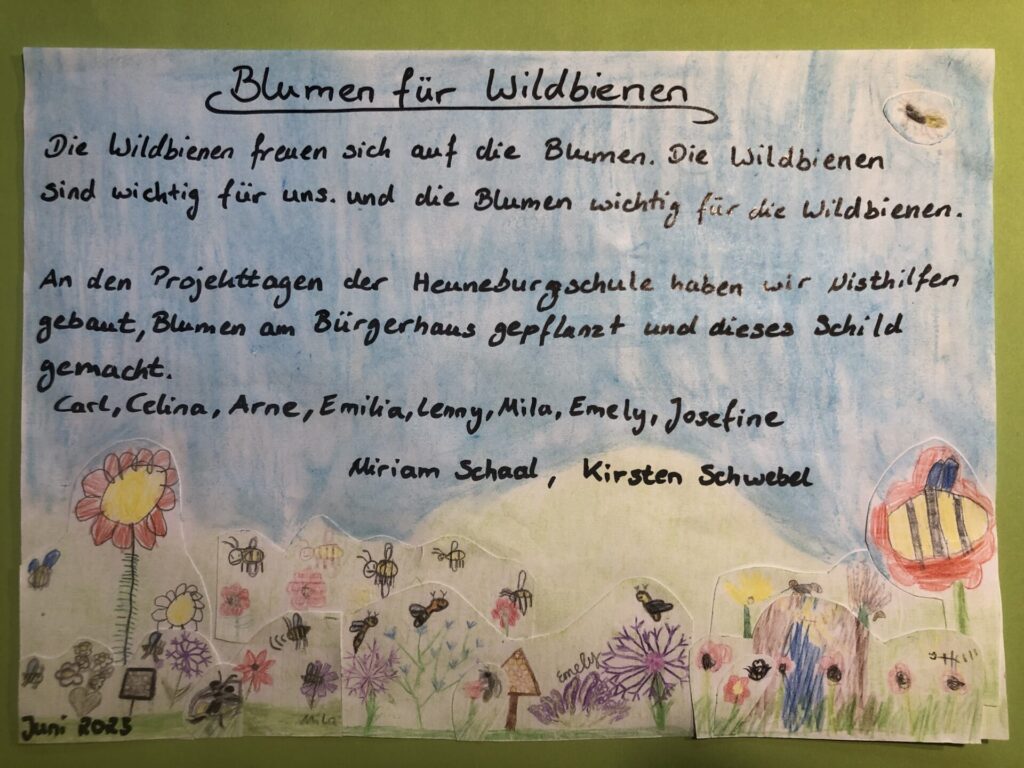 Blumen für Wildbienen
Die Wildbienen freuen sich auf die Blumen. Die Wildbienen
sind wichtig für uns. und die Blumen wichtig für die Wildbienen.
An den Projekttagen der Heuneburgschule haben wir Nisthilfen
gebaut, Blumen am Bürgerhaus gepflanzt und dieses Schild
gemacht.
Carl, Celina, Arne, Emilia, Lenny, Mila, Emely, Josefine
Miriam Schaal, Kirsten Schwebel
Emely
Mila
Juni 2023